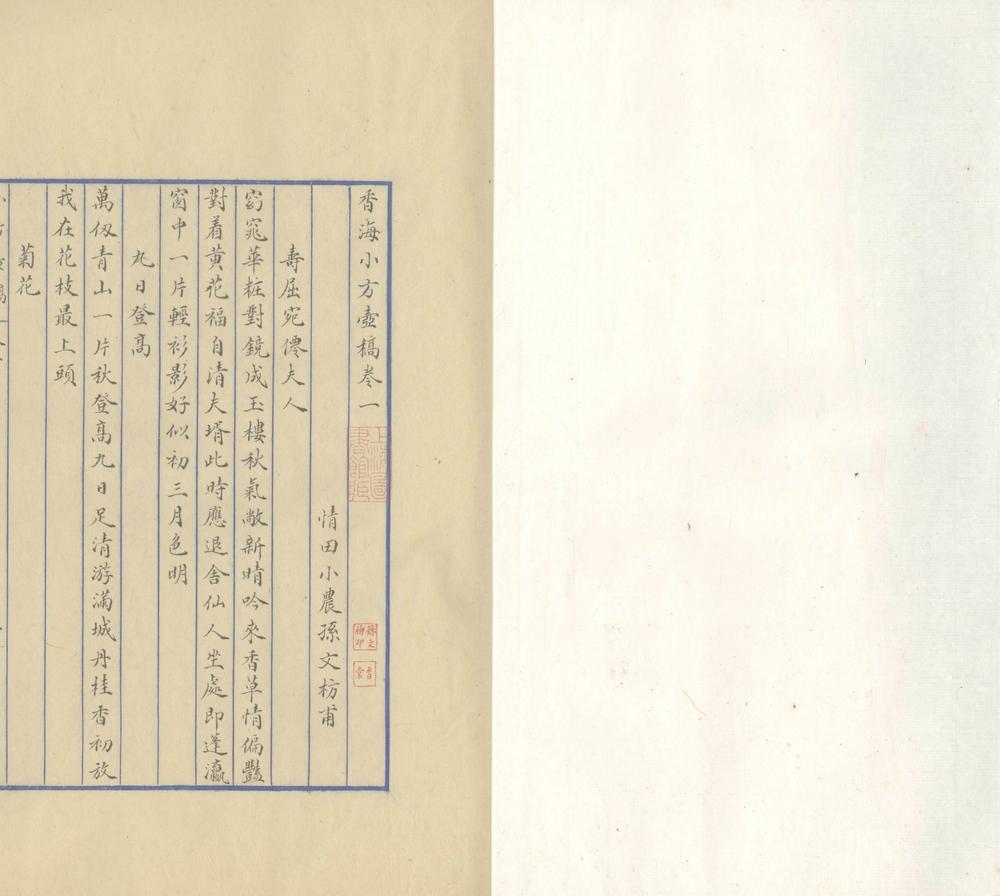 香海小方壺稿卷一
情田小農孫文枋甫
壽屈宛僊夫人
窈窕華粧對鏡成玉樓秋氣敞新晴吟來香草情偏豔
對着黃花福自清夫壻此時應退舍仙人坐處即蓬瀛
窗中一片輕衫影好似初三月色明
九日登高
萬仭青山一片秋登高九日足清游滿城丹桂香初放
我在花枝最上頭
菊花
上海圖書館藏